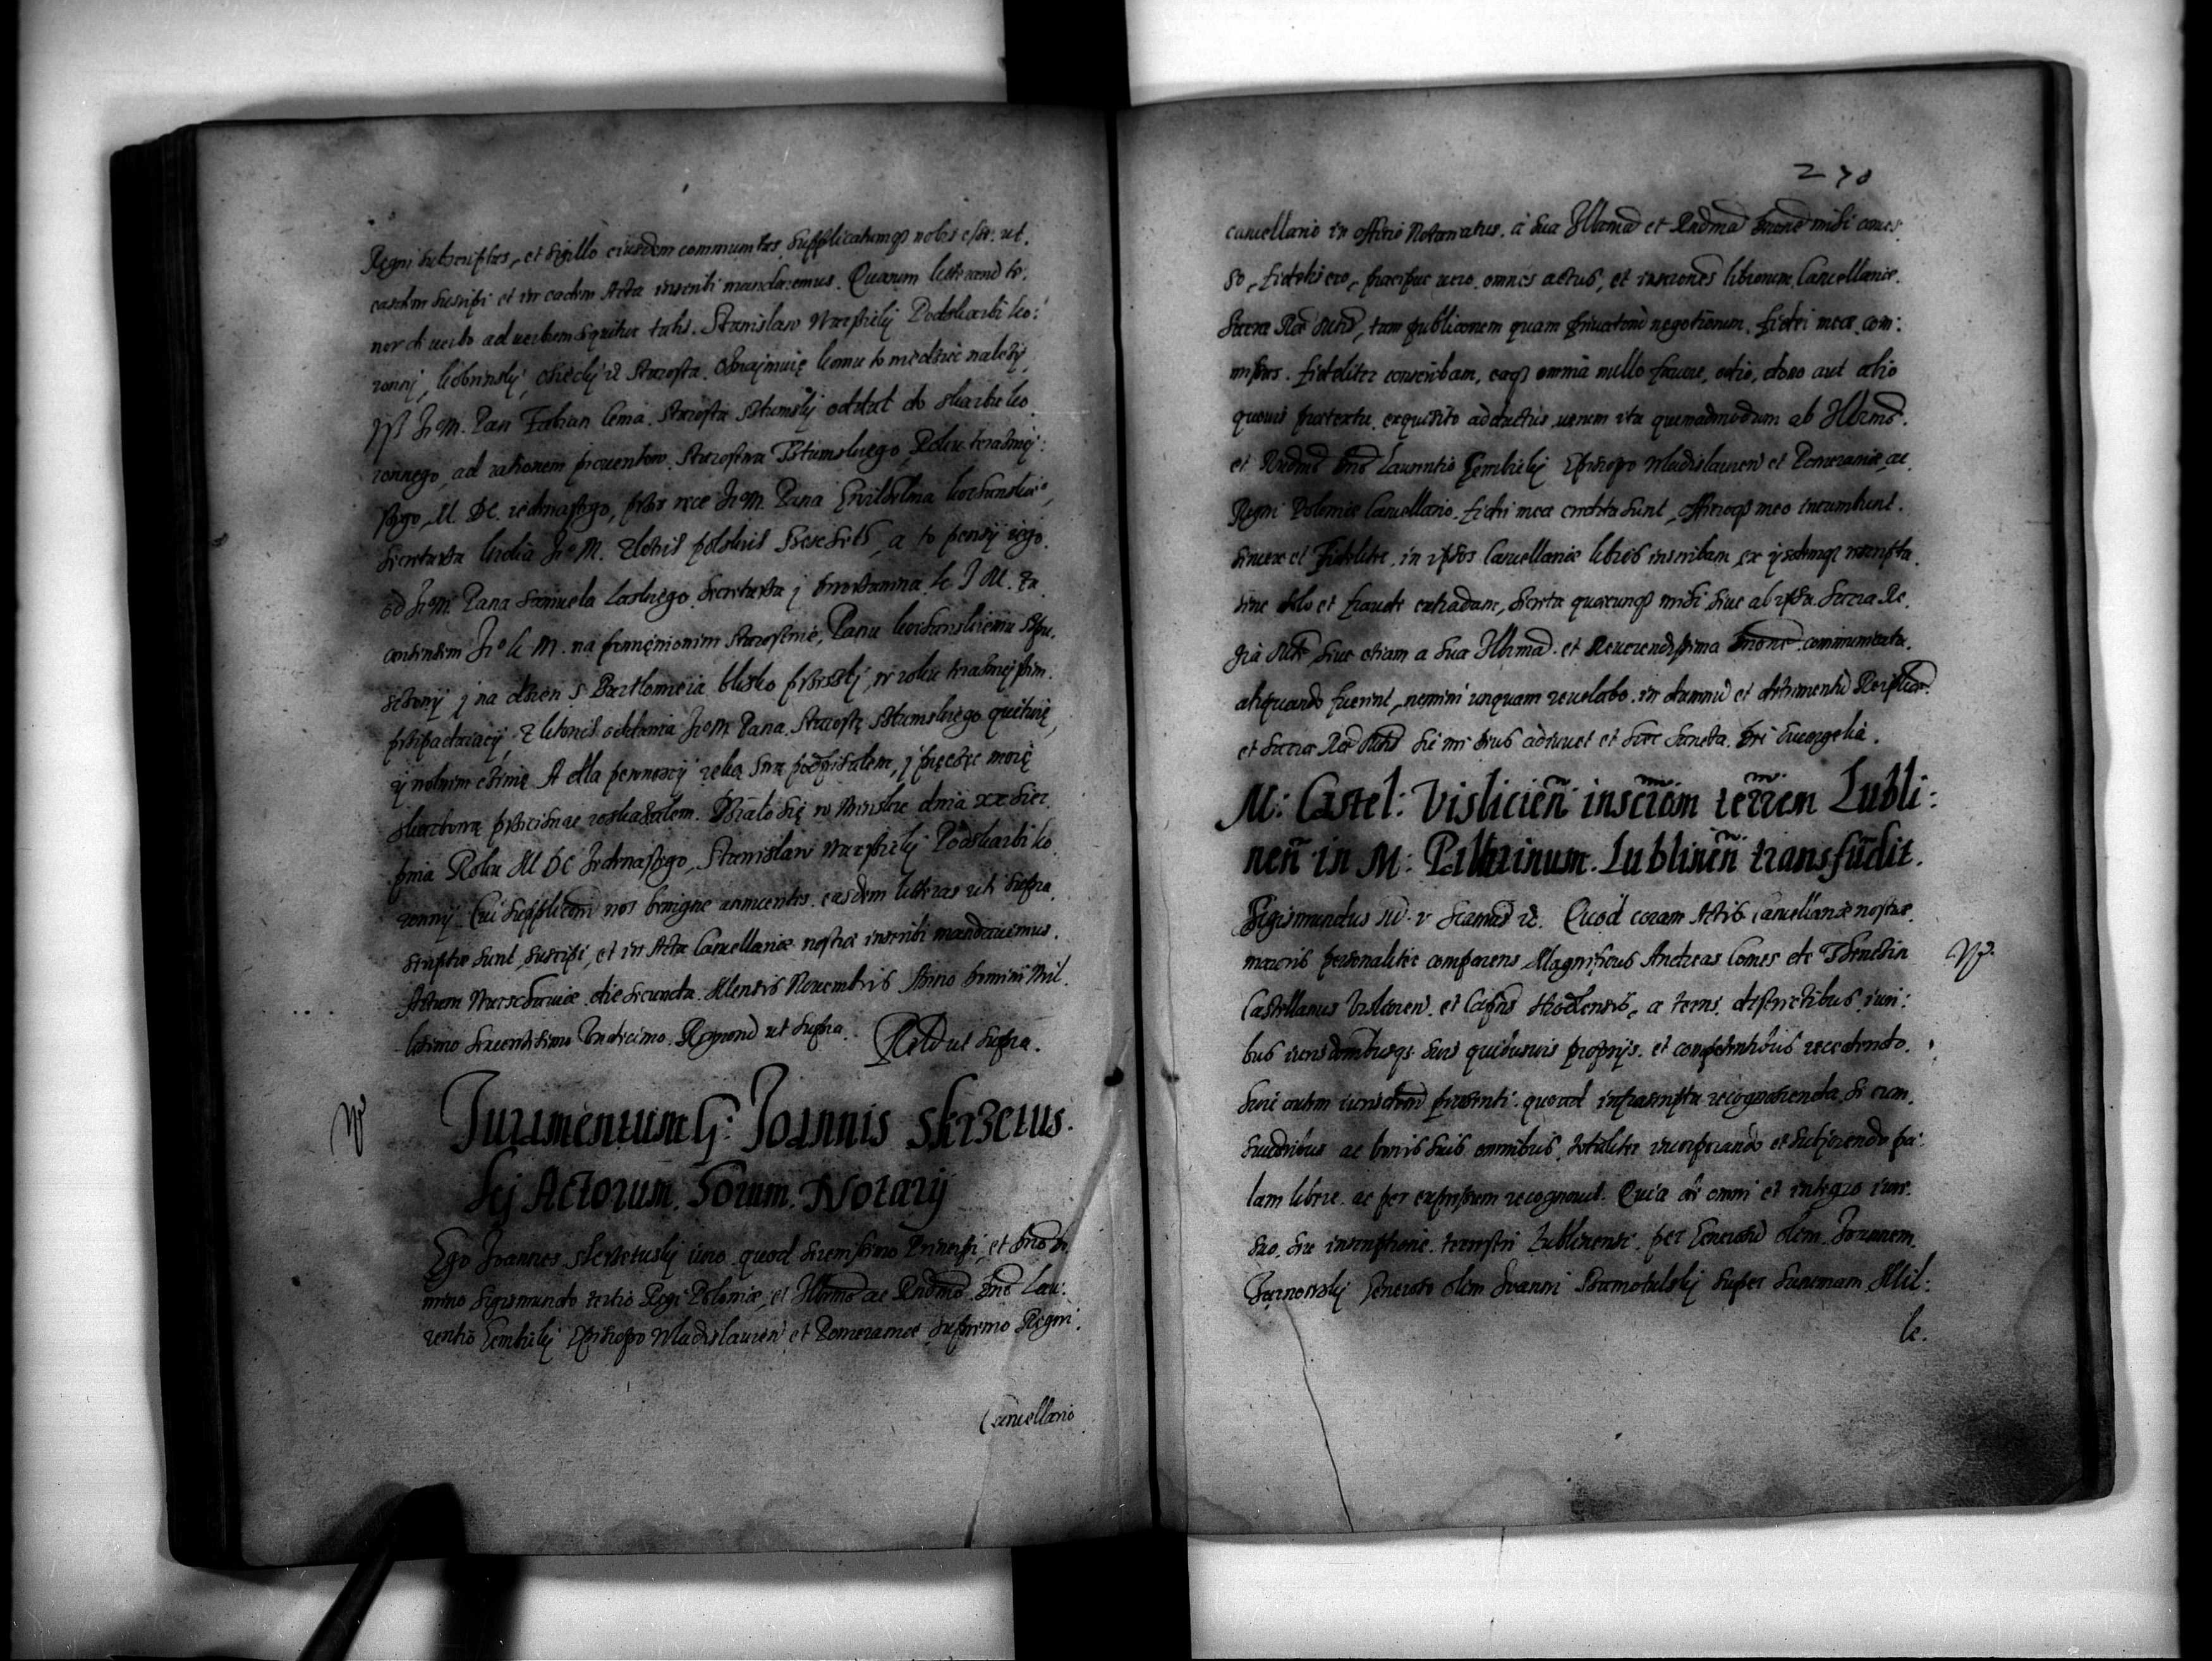 Regni subscriptas, et sigillo eiusdem communitas, supplicatumq3 nobis esse, ut
easdem suscipi et in eadem Acta inseribi mandaremus. Quarum litterarum te:
nor de verbo ad verbum sequitur talis. Stanislaw Warszicky Podskarbi ko:
ronny, kobrinsky, Starosta. Oznajmuię komu to wiedziec nalezy,
Jsz Jeº M. Pan Fabian Cema Starosta Sztumsky oddał do skarbu ko
ronnego, ad rationem prouentow Starostwa Sztumskiego, Roku terazniej:
szego, M. DC. iednastego, przes ręce Jeº M. Pana
Secretarza krolia Jeº M. zlotich polskich a to pensy iego
od Jeº M. Pana Samuela Laskiego Secretarza j K. J M. za
consensem Jº K M. na Starostwie, Panu
y na dzien S. Bartlomieia blisko przeszly, w roku teraznieyszim
z ktorich oddania Jeº M. Pana Starostę Sztumskiego quituię,
y wolnim czinię. A dla pewnosczy ręką swą podpisałem, j pięczęc moię
skarbową przicisnąc roskazałem. Działo się w dnia xx Sier
pnia Roku M DC Jednastego, Stanislaw Warszicky Podskarbi ko
ronny. Cui supplicationi nos benigne annuentes, easdem litteras uti supra
scriptæ sunt, suscipi, et in Acta Cancellariæ nostræ inscribi mandauimus.
Actum Warschauiæ die secunda Mensis Nouembris Anno Domini Mil
lesimo Sexcentesimo Vndecimo. Regnorum ut supra. Relatio ut supra.
Juramentum G: Joannis Skrzetus
ky Actorum. Horum. Notary
Ego Joannes Skrzetusky iuro, quod Serenissimo Principi, et Dno D
mino Sigismundo tertio Regi Poloniæ, et Illrmo ac Rndmo Dno Lau:
rentio Gembicky Episcopo Wladislauien et Pomeraniæ, Supremo Regni
Cancellario
270
cancellario in officio Notariatus, à Sua Illrma et Rndma Dnone mihi conces
so, fidelis ero, præcipue uero omnes actus, et inscriones librorum Cancellariæ
Sacræ Ræ Mtis, tam publicorum quam priuatorum negotiorum, fidei meæ com:
missos, fideliter conscribam, eaq3 omnia nullo fauore, odio, dono aut alio
quouis prætextu exquisito adductus, uerum ita quemadmodum ab Illrmo
et Rndmo Dno Laurentio Gembicky Episcopo Wladislauien et Pomeraniæ, ac
Regni Poloniæ Cancellario, fidei meæ credita sunt, officioq3 meo incumbunt
sincere et fideliter, in ipsos Cancellariæ libros inscribam, ex ysdemq3 rescripta
sine dolo et fraude extradam, secreta quæcunq3 mihi, siue ab ipsa Sacra Re
gia Mte, siue etiam a Sua Illrma et Reuerendissima Dnone communicata
aliquando fuerint, nemini unquam reuelabo, in damnum et detrimentum Reipublicæ
et Sacræ Ræ Mtis Sic mi Deus adiuuet et hæc Sancta Dei Euangelia.
M: Castel: Vislicień inscriom terrem Lubli:
neñ in M: Lublineñ transfundit.
Sigismundus III. &c. Quod coram Actis Cancellariæ nostræ
maioris personaliter comparens Magnificus Andreas Comes de Thenczin
Castellanus Vislicien. et Capneus a terris, districtibus, iuri:
bus iurisdictionibusq3 suis quibusuis proprys et competentibus recedendo
suic autem iurisdictioni præsenti quoad infrascripta recognoscenda, se cum
successoribus ac bonis suis omnibus, totaliter incorporando et subyciendo pa
lam libere ac per expressum recognouit. Quia de omni et integro iure
suo, siue inscriptione terrestri Lublinensi, per Generosum olim Joannem
Generoso olim Joanni Szamotulsky super summam Mil:
le.